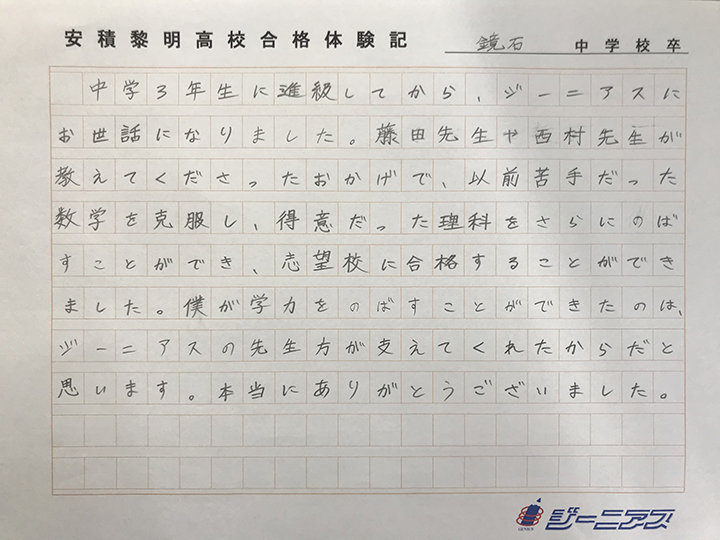 安積黎明高校合格体験記 鏡石 中学校卒
中学3年生に進級してから、ジーニアスに
お世話になりました。藤田先生や西村先生が
教えてくださったおかげで、以前苦手だった
数学を克服し、得意だった理科をさらにのば
すことができ、志望校に合格することができ
ました。僕が学力をのばすことができたのは、
ジーニアスの先生方が支えてくれたからだと
思います。本当にありがとうございました。
GENIUS ジーニアス